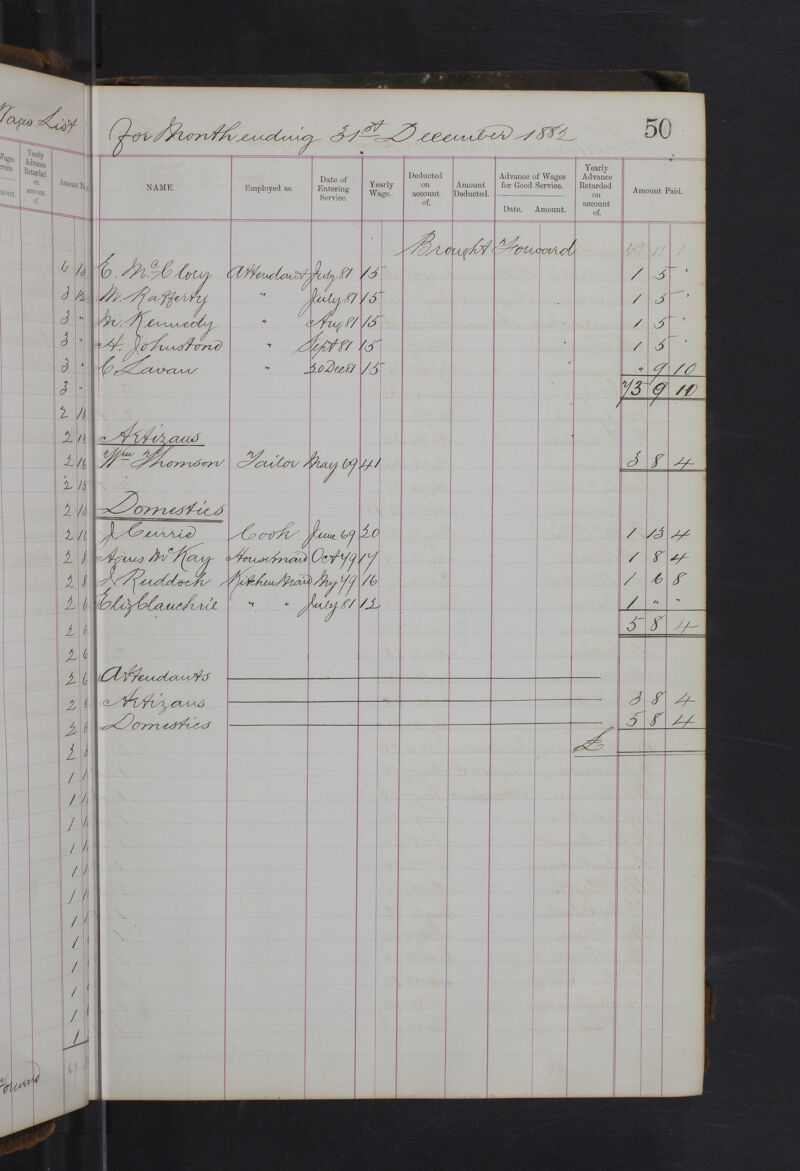 Wages List
For Month ending 31st December 1882
50
NAME. Employed as. Date of Entering Service. Yearly Wage. Deducted on account of. Amount Deducted. Advance of Wages for Good Service. Date. Amount. Yearly Advance Retarded on account of. Amount Paid.
Brought Forward
E. McClory Attendant July 81 15 1 5 "
M. Rafferty " July 81 15 1 5 "
M. Kennedy " Aug 81 15 1 5 "
A. Johnstone " Sept 81 15 1 5 "
C. Lavan " 20 Dec 81 15 " 9 10
73 9 10
Artizans
Wm Thomson Tailor May 69 41 3 8 4
Domestics
J Currie Cook June 69 20 1 13 4
Agnes McKay Housemaid Oct 79 17 1 8 4
J Ruddock Kitchen Maid My 79 16 1 6 8
Eliz Clauchrie " " July 81 12 1 " "
5 8 4
Attendants
Artizans 3 8 4
Domestics 5 8 4
£
Forward